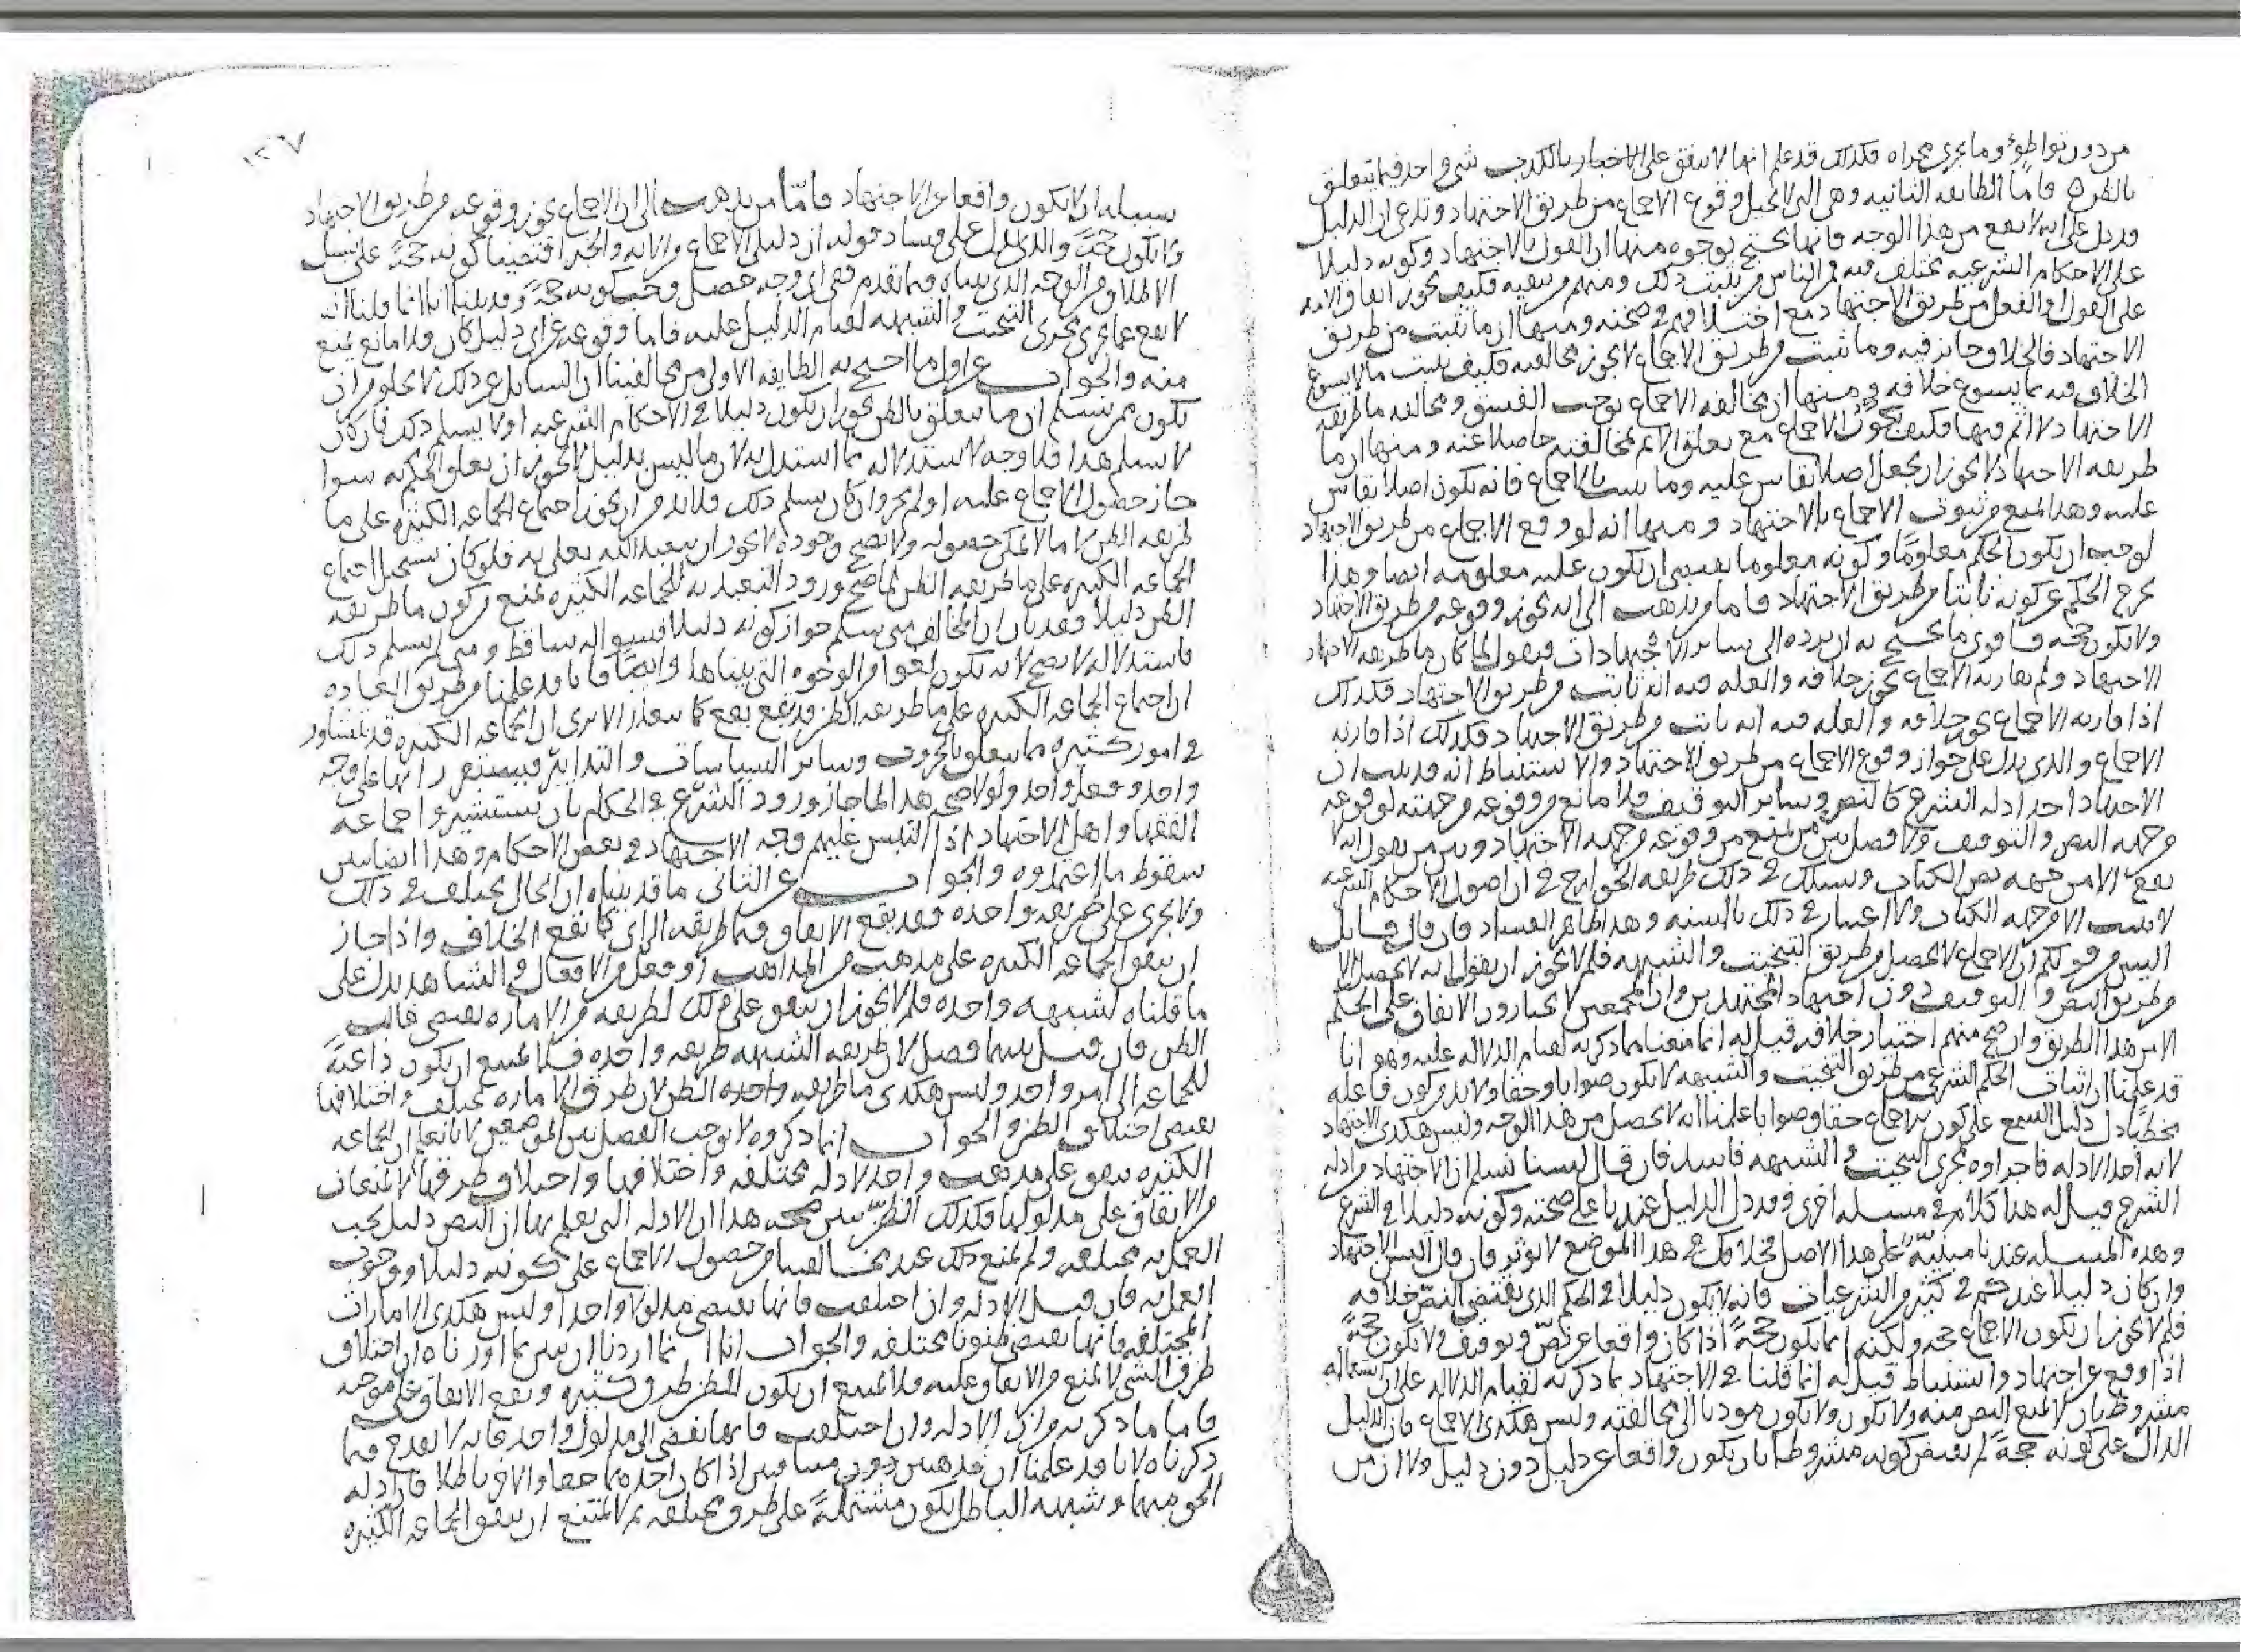 من دون تواطؤ وما يجري مجراه فكذلك قد علم انها لا تتفق على الاخبار بالكذب شي واحد فيما يتعلق
بالظن ٥ فاما الطايفه الثانيه وهي التي لا تحيل وقوع الاجماع من طريق الاجتهاد وتدعي ان الدليل
قد دل على انه لا يقع من هذا الوجه فانها تحتج بوجوه منها ان القول بالاجتهاد وكونه دليلا
على الاحكام الشرعيه مختلف فيه فمن الناس من يثبت ذلك ومنهم من ينفيه فكيف يجوز اتفاق الامه
على القول او الفعل من طريق الاجتهاد مع اختلافهم في صحته ومنها ان ما ثبت من طريق
الاجتهاد فالخلاف جايز فيه وما ثبت من طريق الاجماع لا يجوز مخالفته فكيف يثبت ما لا يسوغ
الخلاف فيه بما يسوغ خلافه ومنها ان مخالفه الاجماع توجب الفسق ومخالفه ما طريقه
الاجتهاد لا اثم فيها فكيف يكون الاجماع مع تعلق الاثم لمخالفته حاصلا عنه ومنها ان ما
طريقه الاجتهاد لا يجوز ان يجعل اصلا يقاس عليه وما يثبت بالاجماع فانه يكون اصلا يقاس
عليه وهذا يمنع من ثبوت الاجماع بالاجتهاد ومنها انه لو وقع الاجماع من طريق الاجتهاد
لوجب ان يكون الحكم معلوما وكونه معلوما يقتضي ان يكون علته معلومه ايضا وهذا
يخرج الحكم عن كونه ثابتا من طريق الاجتهاد فاما من يذهب الى انه يجوز وقوعه من طريق الاجتهاد
ولا يكون حجه فاقوى ما يحتج به ان يرده الى ساير الاجتهادات فيقول لما كان ما طريقه الاجتهاد
الاجتهاد ولم يقارنه الاجماع يجوز خلافه والعله فيه انه ثابت من طريق الاجتهاد فكذلك
اذا قارنه الاجماع يجوز خلافه والعله فيه انه ثابت من طريق الاجتهاد فكذلك اذا قارنه
الاجماع والذي يدل على جواز وقوع الاجماع من طريق الاجتهاد والاستنباط انه قد ثبت ان
الاجتهاد احد ادله الشرع كالنص وساير التوقيف فلا مانع من وقوعه من جهته لوقوعه
من جهه النص والتوقيف ولا فصل بين من يمنع من وقوعه من جهه الاجتهاد وبين من يقول انه لا
يقع الا من جهه نص الكتاب ويسلك في ذلك طريقه الخوارج في ان اصول الاحكام الشرعيه
لا يثبت الا من جهه الكتاب ولا اعتبار في ذلك بالسنه وهذا ظاهر الفساد فان قال قايل
اليس من قولكم ان الاجماع لا يحصل من طريق التبخيت والشبهه فلم لا يجوز ان يقول انه لا يحصل الا
من طريق النص والتوقيف دون اجتهاد المجتهدين وان المجمعين لا يختارون الاتفاق على الحكم
الا من هذا الطريق وان صح منهم اختيار خلافه قيل له انما منعنا مما ذكرته لقيام الدلاله عليه وهو انا
قد علمنا ان اثبات الحكم الشرعي من طريق التبخيت والشبهه لا يكون صوابا وحقا ولا بد من كون فاعله
مخطيا دل دليل السمع على كون الاجماع حقا وصوابا علمنا انه لا يحصل من هذا الوجه وليس هكدى الاجتهاد
لانه احد الادله فاجراوه مجرى التبخيت والشبهه فاسد فان قال لسنا نسلم ان الاجتهاد من ادله
الشرع قيل له هذا كلام في مسله اخرى وقد دل الدليل عندنا على صحته وكونه دليلا في الشرع
وهذه المسله عندنا مبنيه على هذا الاصل فخلافك في هذا الموضع لا يوثر فان قال اليس الاجتهاد
وان كان دليلا عندكم في كثير من الشرعيات فانه لا يكون دليلا في الحكم الذي يقتضي النص خلافه
فلم لا يجوز ان يكون الاجماع حجه ولكنه انما يكون حجة اذا كان واقعا عن نص وتوقيف ولا يكون حجة
اذا وقع عن اجتهاد واستنباط قيل له انما قلنا في الاجتهاد بما ذكرته لقيام الدلاله على ان استعماله
مشروط بان لا يمنع النص منه ولا يكون مودنا الى مخالفته وليس هكدى الاجماع فان الدليل
الدال على كونه حجة لم يقتض كونه مشروطا بان يكون واقعا عن دليل دون دليل ولا ان من
١٢٧
سبيله ان لا يكون واقعا عن الاجتهاد فامّا من يذهب الى ان الاجماع يجوز وقوعه من طريق الاجتهاد
ولا يكون حجة والذي يدل على فساد قوله ان دليل الاجماع من الايه والخبر اقتضيا كونه حجة على
الاطلاق من الوجه الذي بيناه فيما تقدم فعلى اي وجه حصل وجب كونه حجة وقد بينا انا انما قلنا انه
لا يقع عما يجري مجرى التبخيت والشبهه لقيام الدليل عليه فاما وقوعه عن اي دليل كان فلا مانع يمنع
منه والجواب عن اول ما احتج به الطايفه الاولى من مخالفينا ان السايل عن ذلك لا يخلو من ان
يكون ممن يسلم ان ما يتعلق بالظن يجوز ان يكون دليلا في الاحكام الشرعيه او لا يسلم ذلك فان كان
لا يسلم هذا فلا وجه لاستدلاله بما استدل به لان ما ليس بدليل لا يجوز ان يعلق الحكم به سوا
جاز حصول الاجماع عليه او لم يجز وان كان يسلم ذلك فلا بد من ان يجوز اجتماع الجماعه الكثيره على ما
طريقه الظن لان ما لا يمكن حصوله ولا يصح وجوده لا يجوز ان يتعبد الله تعلى به فلو كان يستحيل اجتماع
الجماعه الكثيره على ما طريقه الظن لما صح ورود التعبد به للجماعه الكثيره فمنع من كون ما طريقه
الظن دليلا وقد بان ان المخالف متى يسلم جواز كونه دليلا فسواله ساقط ومتى لم يسلم ذلك
فاستدلاله لا يصح لانه يكون لغوا من الوجوه التي بيناها وايضا فانا قد علمنا من طريق العاده
ان اجتماع الجماعه الكثيره على ما طريقه الظن قد يقع الا ترى ان الجماعه الكثيره قد تتشاور
في امور كثيره مما يتعلق بالحروب وساير السياسات والتدابير فيستقر رايها على وجه
واحد وفعل واحد ولولا صحه هذا لما جاز ورود الشرع في الحكام بان يستشيروا جماعه
الفقها واهل الاجتهاد اذا التبس عليهم وجه الاجتهاد في بعض الاحكام وهذا ايضا يبين
سقوط ما اعتمدوه والجواب عن الثاني ما قد بيناه ان الحال يختلف في ذلك
ولا يجري على طريقه واحده فقد يقع الاتفاق فيما طريقه الراي كما يقع الخلاف واذا جاز
ان يتفق الجماعه الكثيره على مذهب من المذاهب او فعل من الافعال في الشاهد يدل على
ما قلناه لشبهه واحده فلم لا يجوز ان يتفق على ذلك لطريقه من الاماره يقتضي غالب
الظن فان قيل بينهما فصل لان طريقه الشبهه طريقه واحده فلا يمتنع ان يكون داعية
للجماعه الى امر واحد وليس هكدى ما طريقه الظن لان طرق الاماره تختلف واختلافها
يقتضي اختلاف الظن والجواب ان ما ذكروه لا يوجب الفصل بين الموضعين لانا نعلم ان الجماعه
الكثيره يتفق على مذهب واحد لادله مختلفه واختلافها واختلاف طرقها لا يمنعان
من الاتفاق على مدلولها فكذلك الظن يبين صحه هذا ان الادله التي يعلم بها ان النص دليل يجب
العمل به مختلفه ولم يمنع ذلك عند مخالفينا من حصول الاجماع على كونه دليلا ووجوب
العمل به فان قيل الادله وان اختلفت فانها تقتضي مدلولا واحدا وليس هكدى الامارات
المختلفه فانها تقتضي ظنونا مختلفه والجواب انا انما اردنا ان نبين بما اوردناه ان اختلاف
طرق الشي لا يمنع من الاتفاق عليه فلا يمتنع ان يكون للظن طرق كثيره ويقع الاتفاق على موجبه
فاما ما ذكرته من ان الادله وان اختلفت فانها تفضي الى مدلول واحد فانه لا يقدح فيما
ذكرناه لانا قد علمنا ان مذهبين اذا كان احدهما حقا والاخر باطلا فان ادله
الحق منهما وشبهه الباطل يكون مشتملة على طرق مختلفه ثم لا يمتنع ان يتفق الجماعه الكثيره